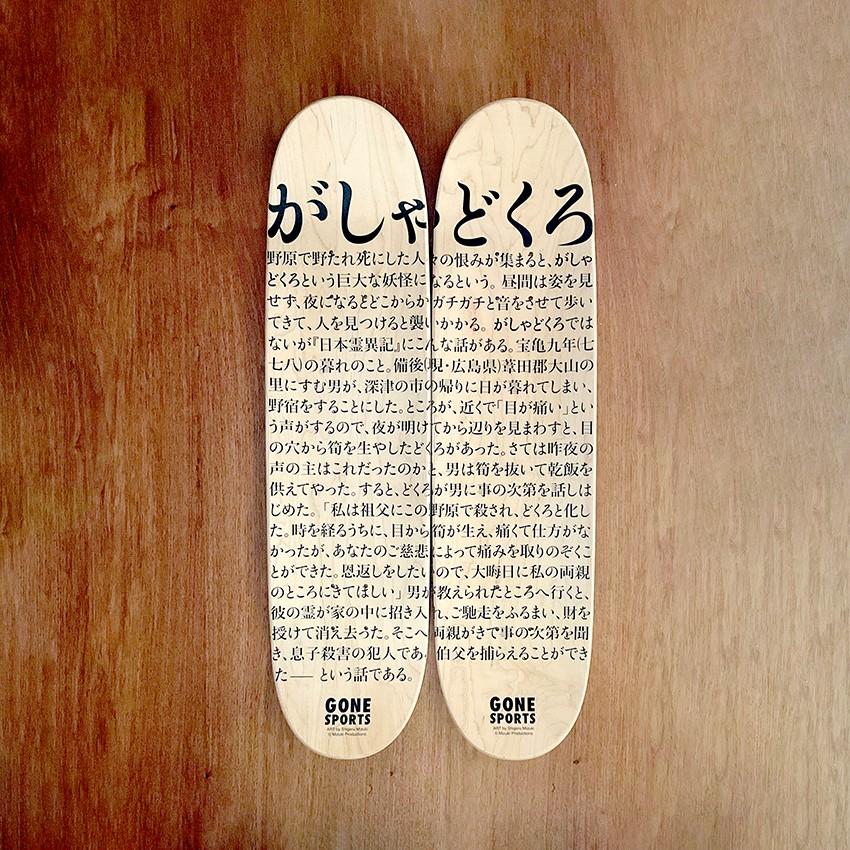 がしゃどくろ
野原で野たれ死にした人々の恨みが集まると、がしゃ
どくろという巨大な妖怪になるという。昼間は姿を見
せず、夜になるとどこからかガチガチと音をさせて歩い
てきて、人を見つけると襲いかかる。がしゃどくろでは
ないが『日本霊異記』にこんな話がある。宝亀九年(七
七八)の暮れのこと。備後(現・広島県)葦田郡大山の
里にすむ男が、深津の市の帰りに日が暮れてしまい、
野宿をすることにした。ところが、近くで「目が痛い」とい
う声がするので、夜が明けてから辺りを見まわすと、目
の穴から筍を生やしたどくろがあった。さては昨夜の
声の主はこれだったのかと、男は筍を抜いて乾飯を
供えてやった。すると、どくろが男に事の次第を話しは
じめた。「私は祖父にこの野原で殺され、どくろと化し
た。時を経るうちに、目から筍が生え、痛くて仕方がな
かったが、あなたのご慈悲によって痛みを取りのぞくこ
とができた。恩返しをしたいので、大晦日に私の両親
のところにきてほしい」男が教えられたところへ行くと、
彼の霊が家の中に招き入れ、ご馳走をふるまい、財を
授けて消え去った。そこへ両親がきて事の次第を聞
き、息子殺害の犯人であ伯父を捕らえることができ
た── という話である。
GONE
SPORTS
ART by Shigeru Mizuki
© Mizuki Productions
GONE
SPORTS
ART by Shigeru Mizuki
© Mizuki Productions